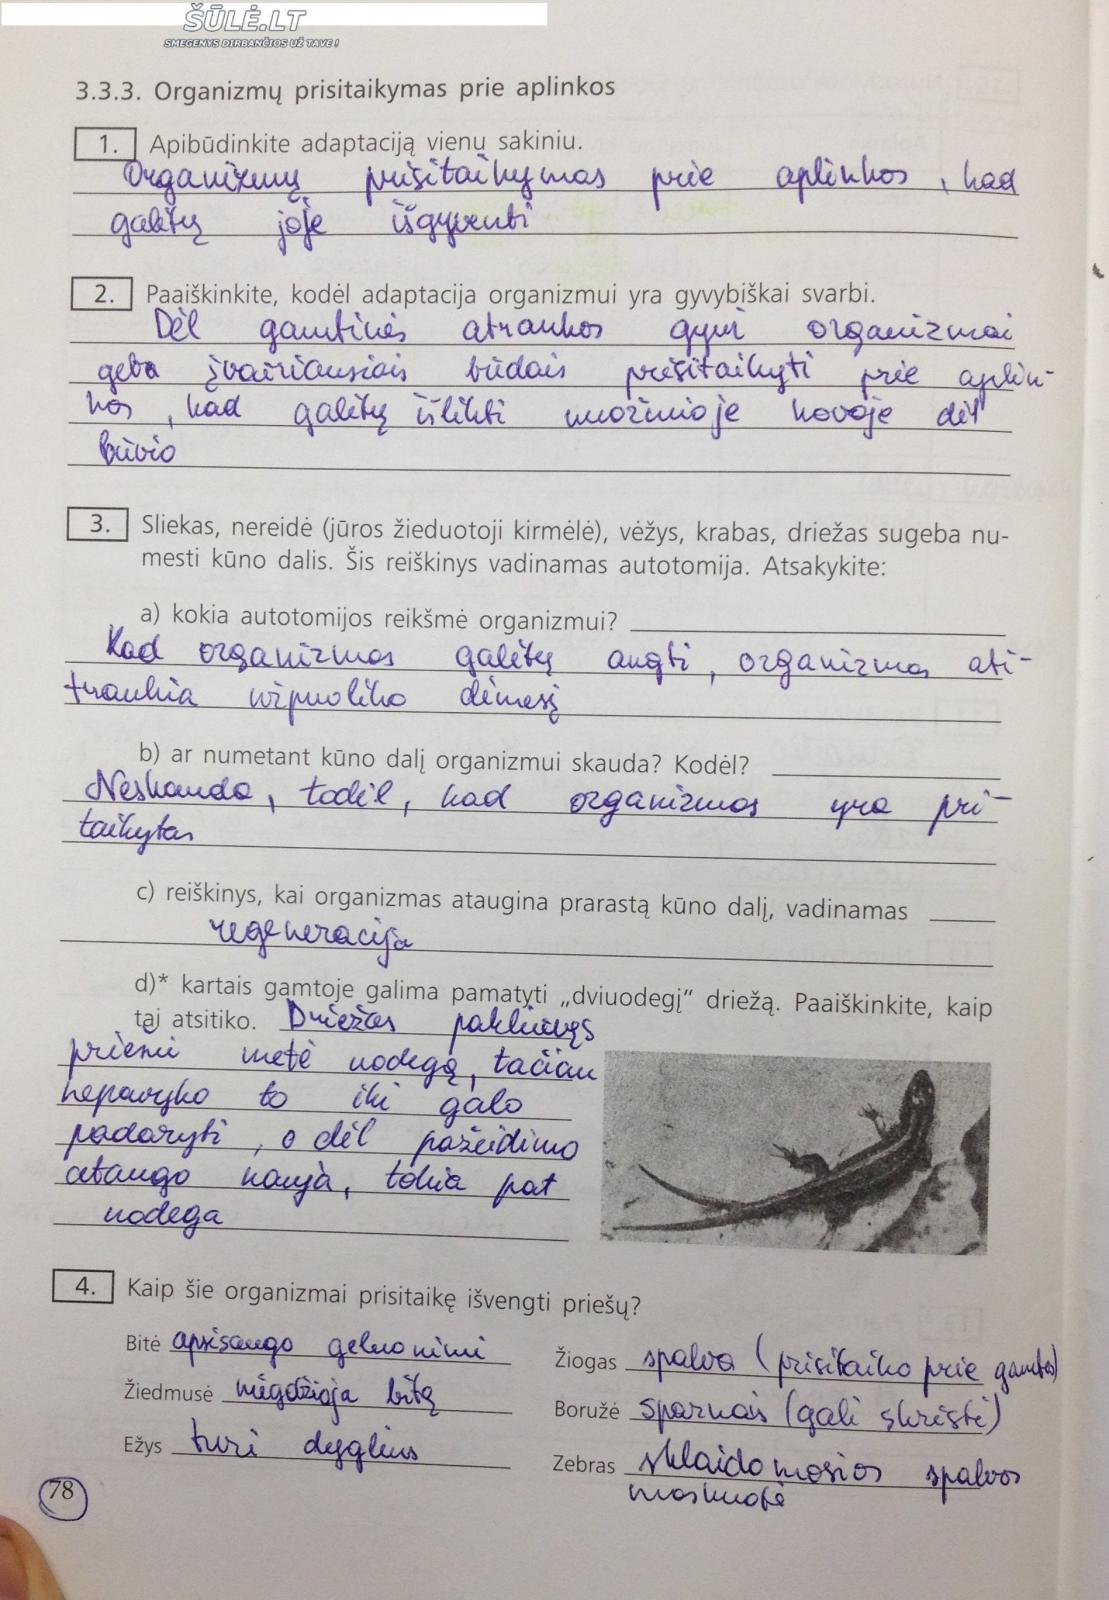 ŠŪLĖ.LT
SMEGENYS DIRBANČIOS UŽ TAVE!
3.3.3. Organizmų prisitaikymas prie aplinkos
1. Apibūdinkite adaptaciją vienu sakiniu.
Organizmų prisitaikymas prie aplinkos, kad
galėtų joje išgyventi
2. Paaiškinkite, kodėl adaptacija organizmui yra gyvybiškai svarbi.
Dėl gamtinės atrankos gyvi organizmai
geba įvairiausiais būdais prisitaikyti prie aplin-
kos, kad galėtų išlikti nuožmioje kovoje dėl
būvio
3. Sliekas, nereidė (jūros žieduotoji kirmėlė), vėžys, krabas, driežas sugeba nu-
mesti kūno dalis. Šis reiškinys vadinamas autotomija. Atsakykite:
a) kokia autotomijos reikšmė organizmui?
Kad organizmas galėtų augti, organizmas ati-
traukia užpuoliko dėmesį
b) ar numetant kūno dalį organizmui skauda? Kodėl?
Neskauda, todėl, kad organizmas yra pri-
taikytas
c) reiškinys, kai organizmas ataugina prarastą kūno dalį, vadinamas
regeneracija
d)* kartais gamtoje galima pamatyti „dviuodegį“ driežą. Paaiškinkite, kaip
tai atsitiko. Driežas pakliuvęs
priešui metė uodegą, tačiau
nepavyko to iki galo
padaryti, o dėl pažeidimo
ataugo nauja, tokia pat
uodega
4. Kaip šie organizmai prisitaikę išvengti priešų?
Bitė apsisaugo geluonimi
Žiedmusė mėgdžioja bitę
Ežys turi dyglius
Žiogas spalva (prisitaiko prie gamtos)
Boružė sparnais (gali skristi)
Zebras sklaidomosios spalvos
maskuotė
78